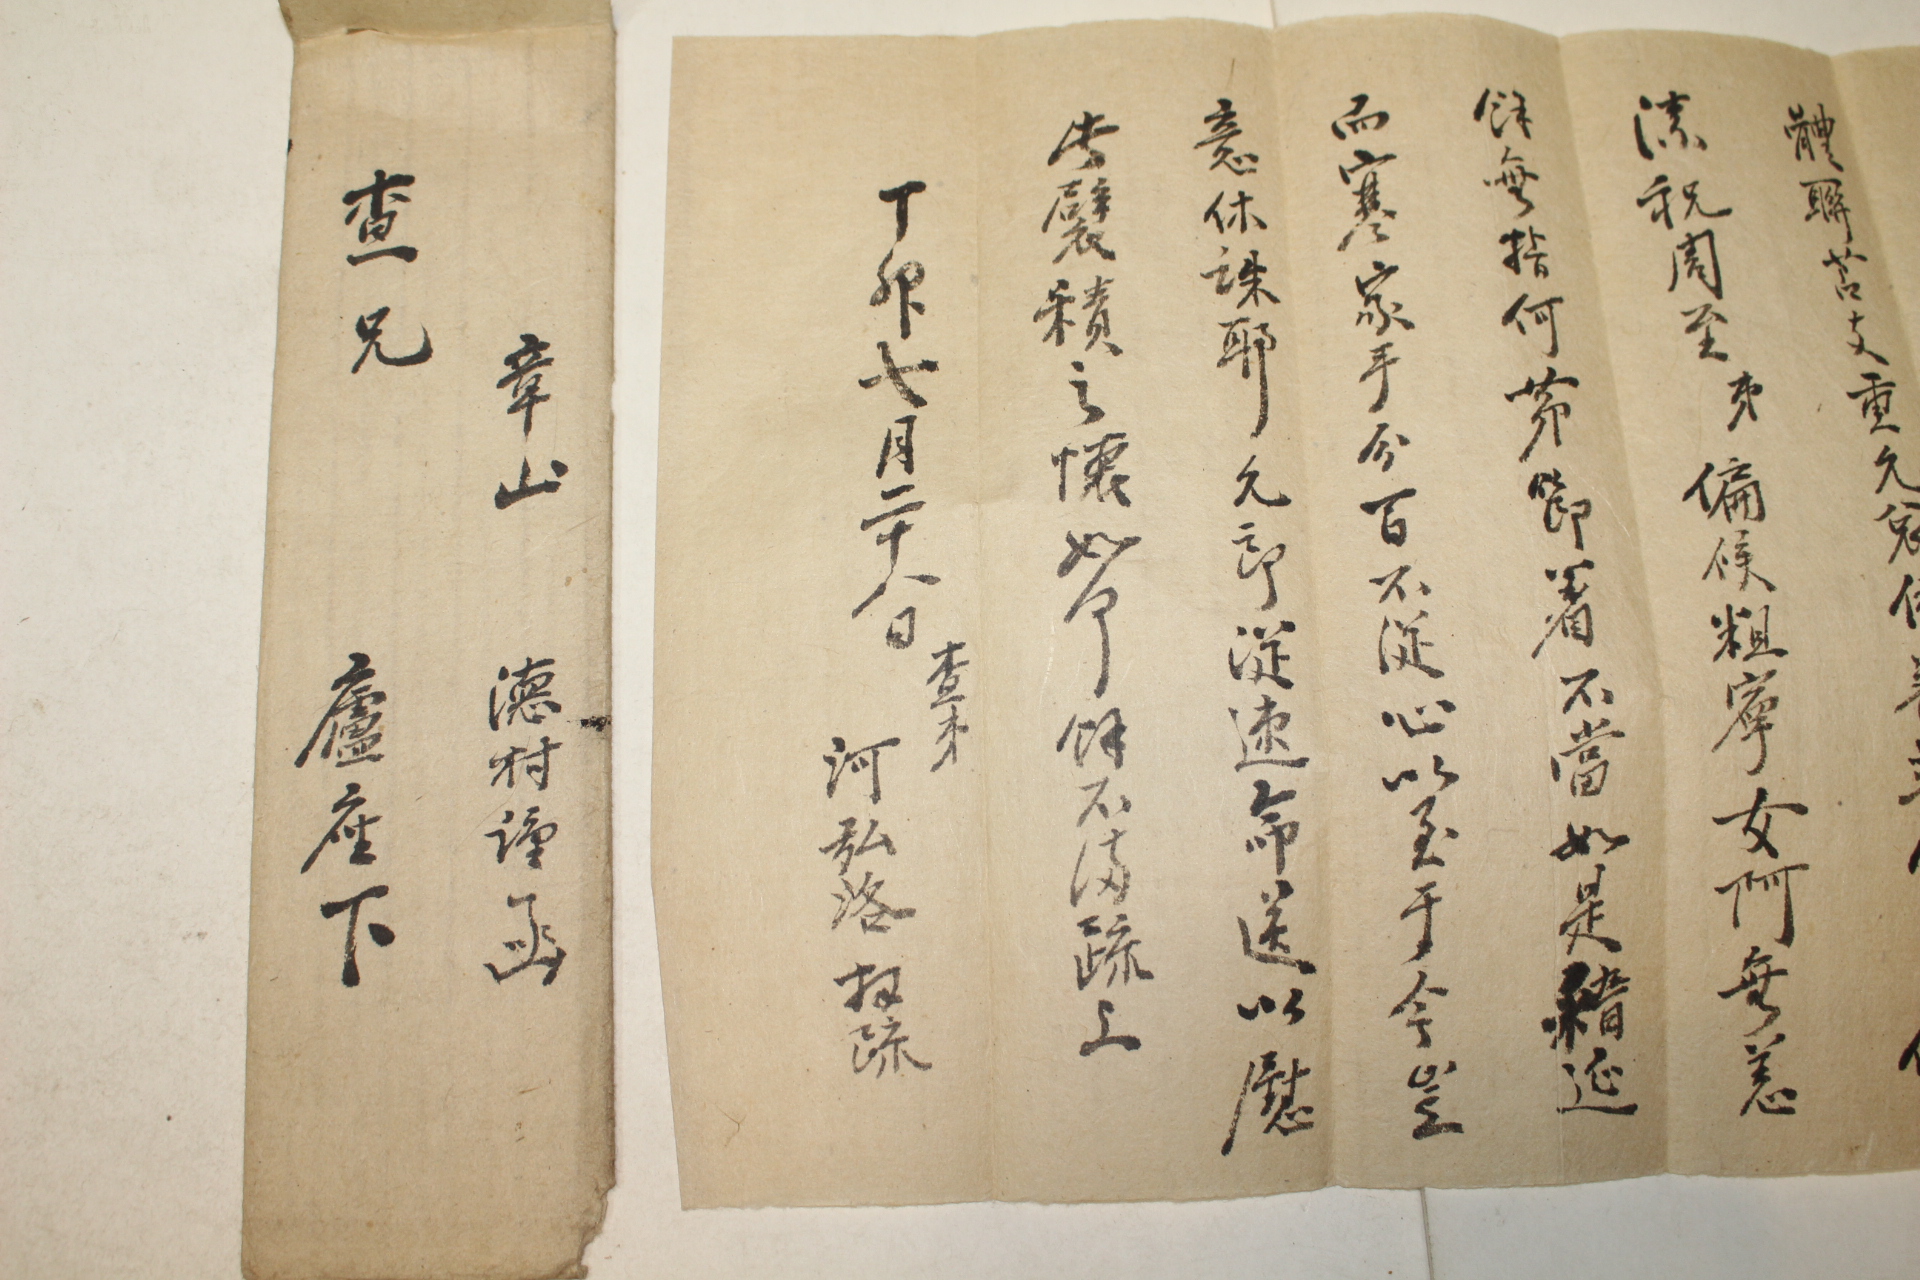 體聯苫支重允
漆祝周至弟偏候粗寧女阿無恙
餘無指何第節着不當如是稽延
而寒家手分百不從心以至于今豈
意休誅耶允郎從速命送以慰
此襞積之懷如何餘不備疏上
丁卯七月二十八日
查弟
河弘洛拜疏
章山
德村謹函
查兄
廬座下